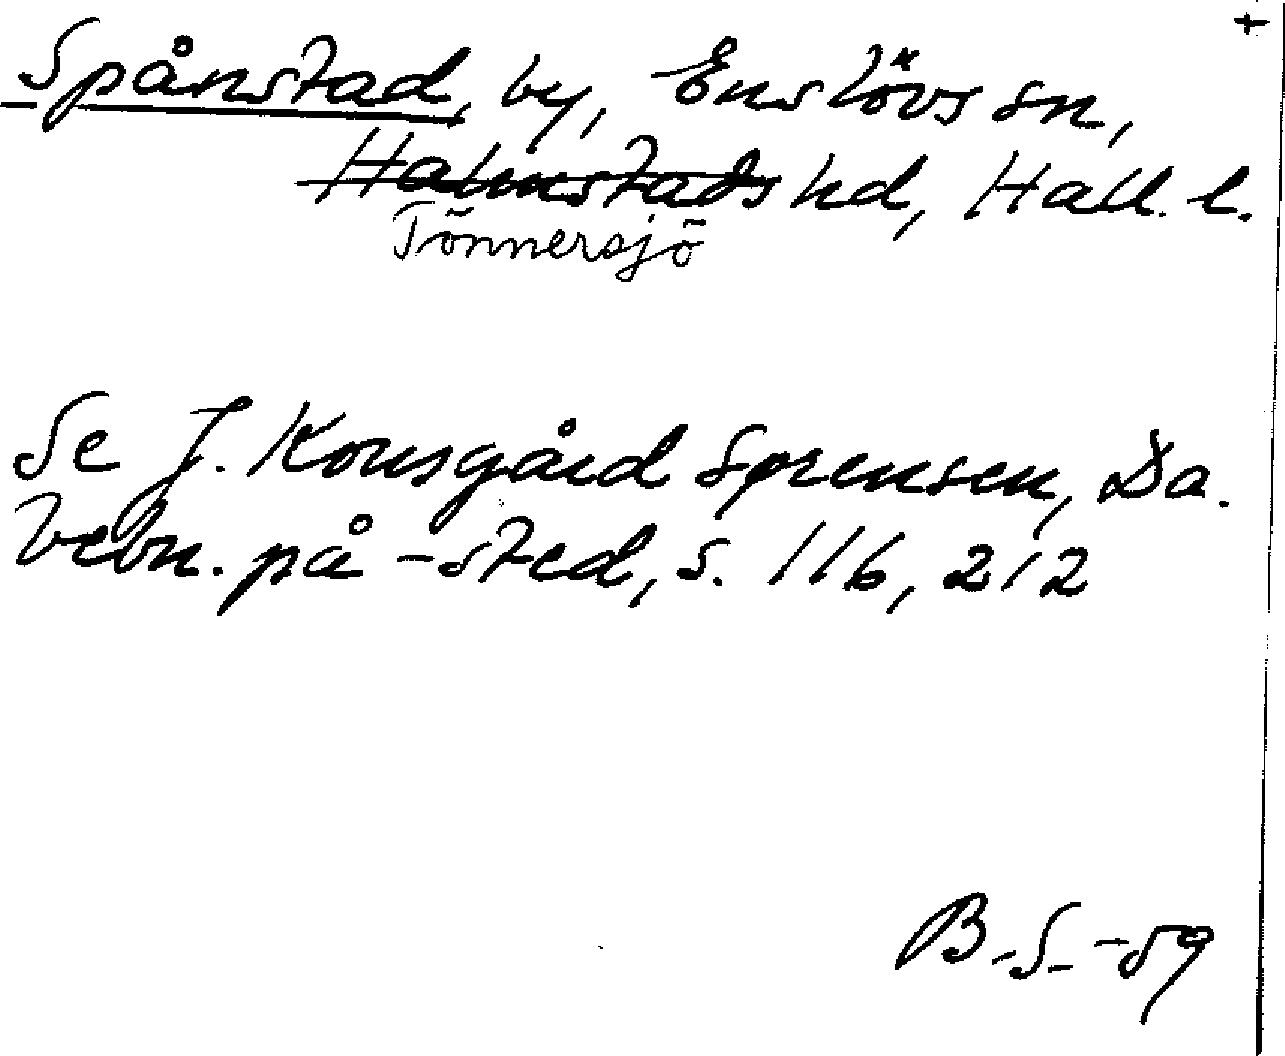 +
Spånstad, by, Enslövs sn,
Halmstads hd, Hall. l.
Tönnersjö
Se J. Kousgård Sørensen, Da.
bebn. på -sted, s. 116, 212
B.S. -59